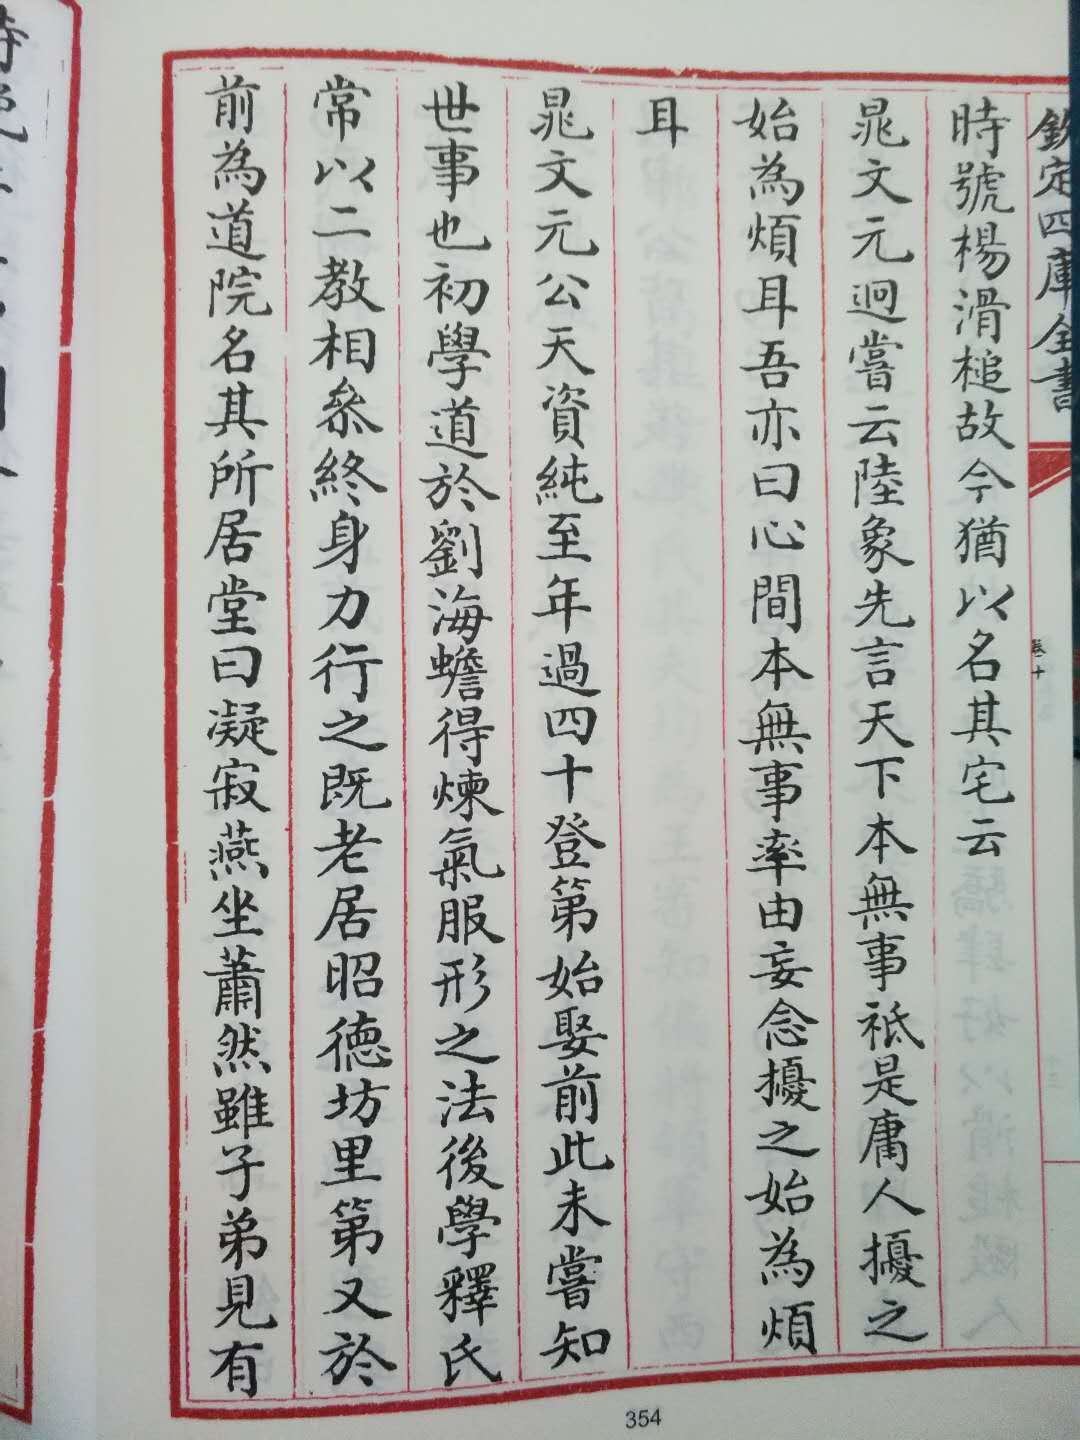 欽定四庫全書
卷十
時號楊滑槌故今猶以名其宅云
晁文元迥嘗云陸象先言天下本無事祗是庸人擾之
始為煩耳吾亦曰心間本無事率由妄念擾之始為煩
耳
晁文元公天資純至年過四十登第始娶前此未嘗知
世事也初學道於劉海蟾得煉氣服形之法後學釋氏
常以二教相叅終身力行之既老居昭德坊里第又於
前為道院名其所居堂曰凝寂燕坐蕭然雖子弟見有
354